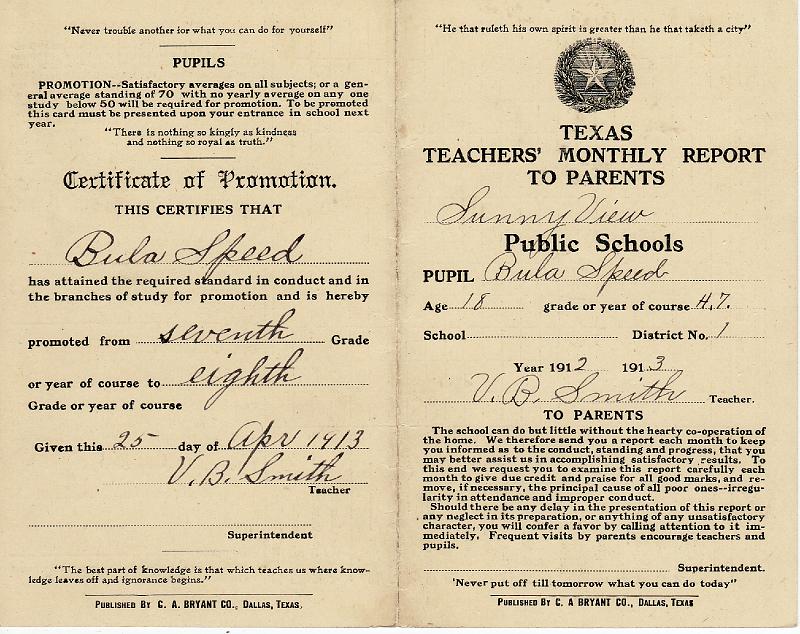 "Never trouble another for what you can do for yourself"
PUPILS
PROMOTION--Satisfactory averages on all subjects; or a gen-
eral average standing of 70 with no yearly average on any one
study below 50 will be required for promotion. To be promoted
this card must be presented upon your entrance in school next
year.
"There is nothing so kingly as kindness
and nothing so royal as truth."
Certificate of Promotion.
THIS CERTIFIES THAT
Bula Speed
has attained the required standard in conduct and in
the branches of study for promotion and is hereby
promoted from seventh Grade
or year of course to eighth
Grade or year of course
Given this 25 day of Apr 1913
V. B. Smith
Teacher
Superintendent
"The best part of knowledge is that which teaches us where know-
ledge leaves off and ignorance begins."
PUBLISHED BY C. A. BRYANT CO., DALLAS, TEXAS,
"He that ruleth his own spirit is greater than he that taketh a city"
TEXAS
TEACHERS' MONTHLY REPORT
TO PARENTS
Sunny View
Public Schools
PUPIL Bula Speed
Age 18 grade or year of course H.7.
School District No. 1
Year 1912 1913
V. B. Smith Teacher.
TO PARENTS
The school can do but little without the hearty co-operation of
the home. We therefore send you a report each month to keep
you informed as to the conduct, standing and progress, that you
may better assist us in accomplishing satisfactory results. To
this end we request you to examine this report carefully each
month to give due credit and praise for all good marks, and re-
move, if necessary, the principal cause of all poor ones--irregu-
larity in attendance and improper conduct.
Should there be any delay in the presentation of this report or
any neglect in its preparation, or anything of any unsatisfactory
character, you will confer a favor by calling attention to it im-
mediately. Frequent visits by parents encourage teachers and
pupils.
Superintendent.
'Never put off till tomorrow what you can do today"
PUBLISHED BY C. A BRYANT CO., DALLAS, TEXAS